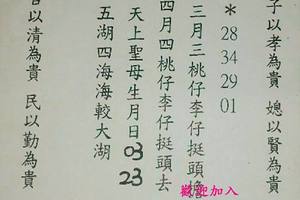 子以孝為貴 媳以賢為貴
*28 34 29 01
三月三桃仔李仔挺頭擔
四月四桃仔李仔挺頭去
天上聖母生月日03 23
五湖四海海較大湖
官以清為貴 民以勤為貴
歡迎加入